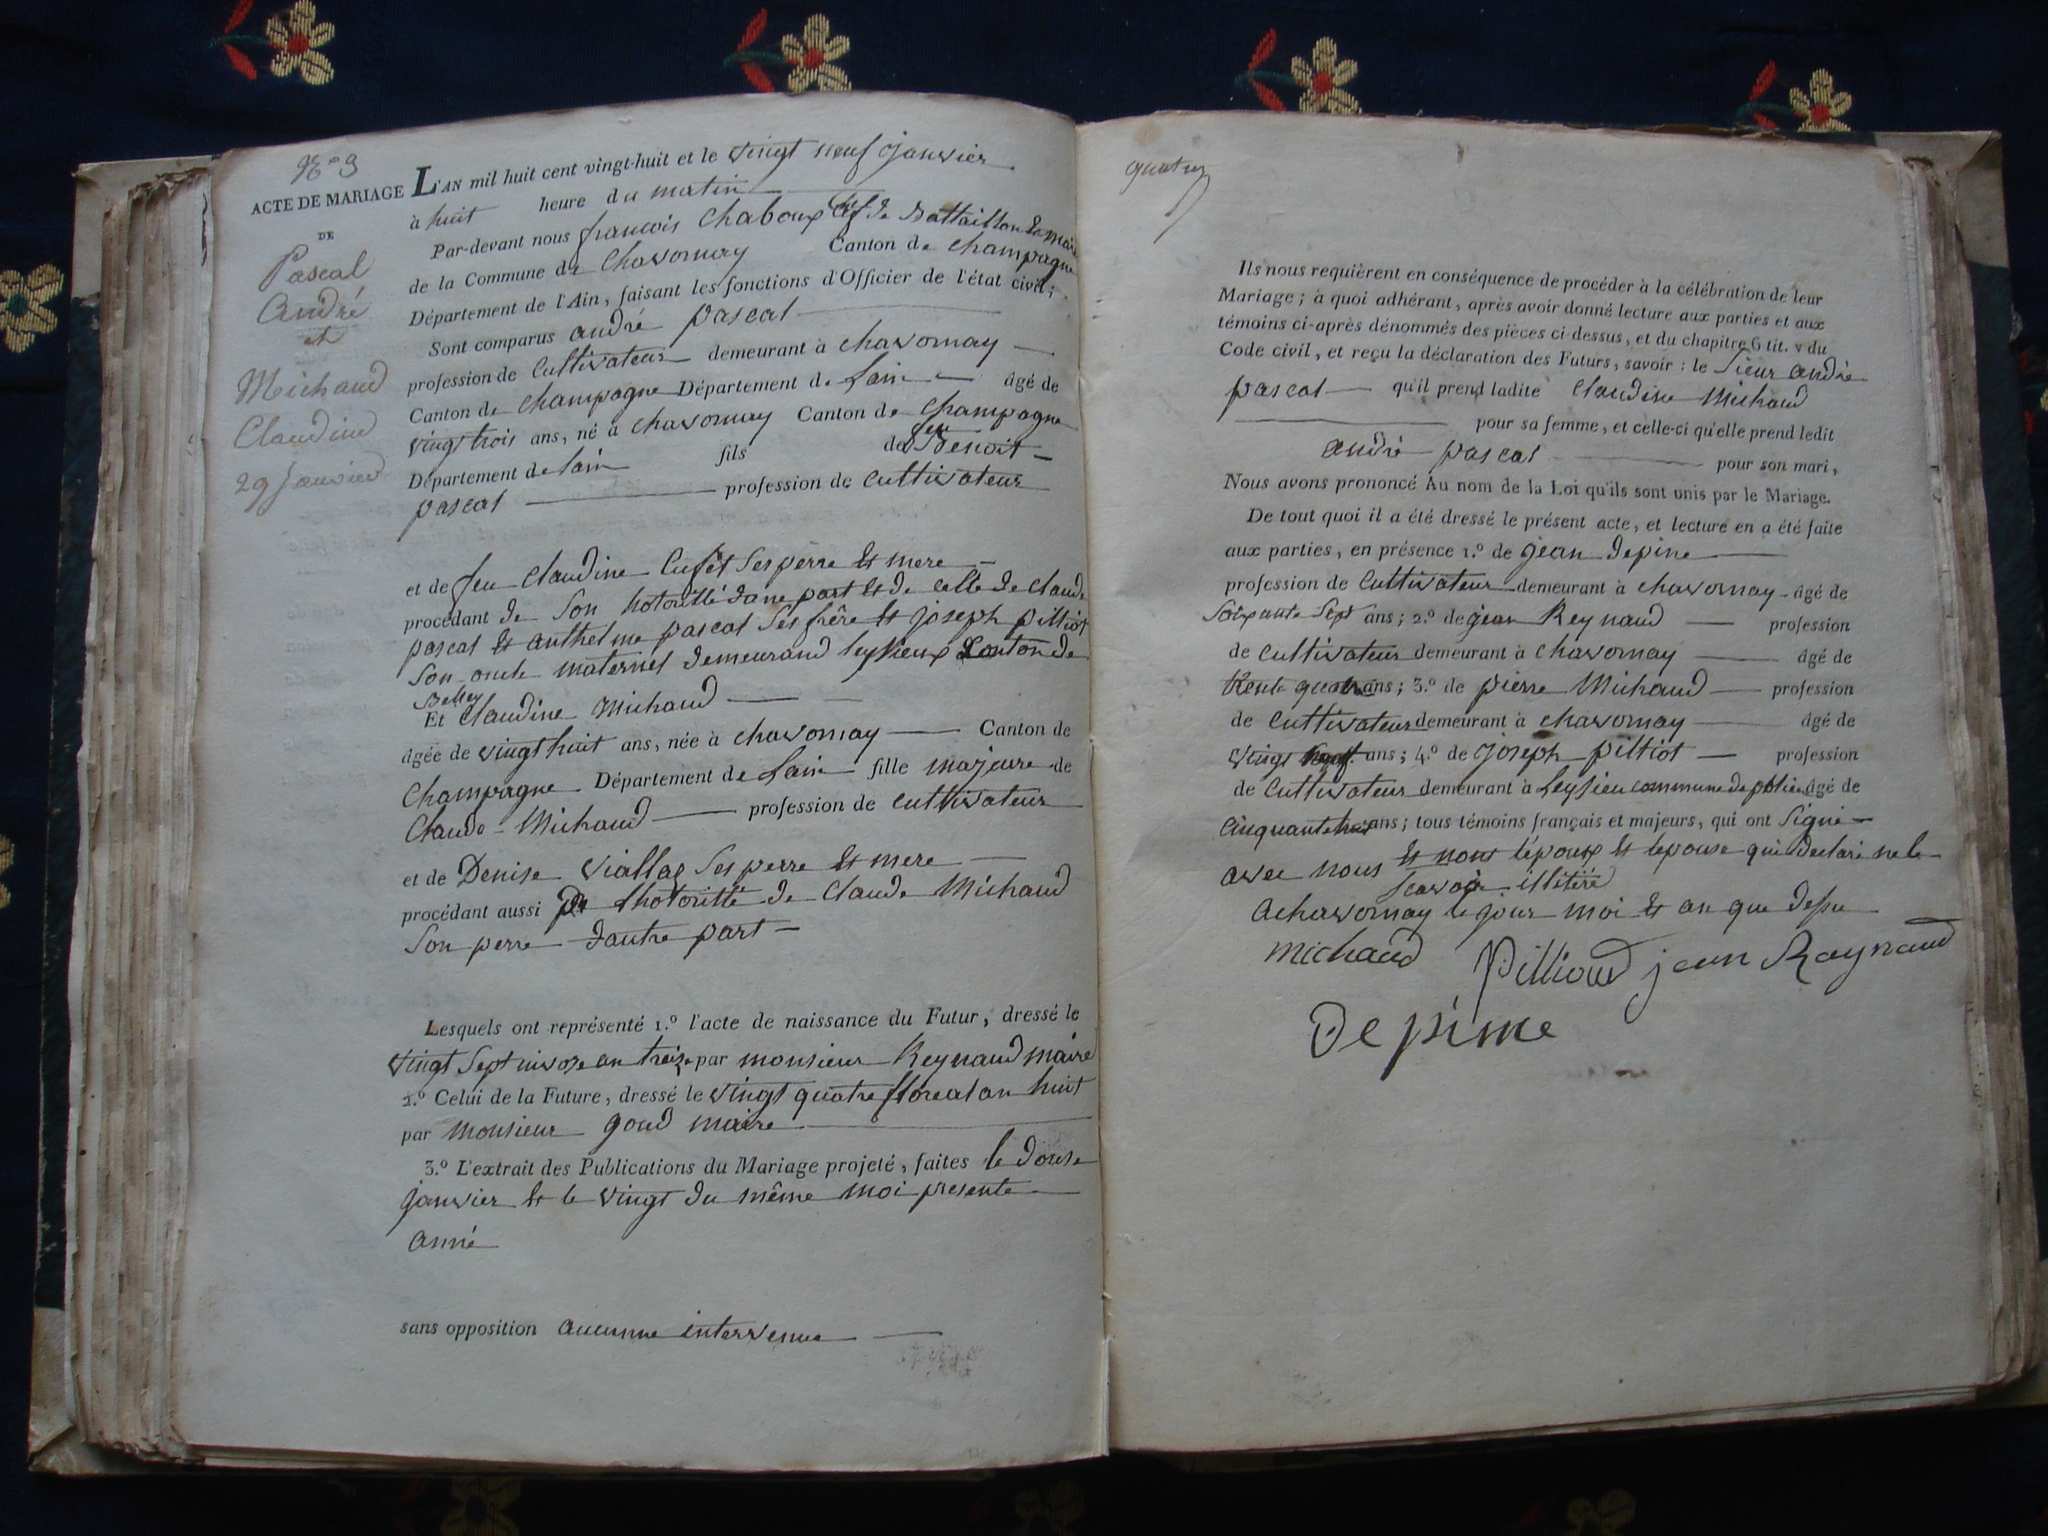 N.º 3
ACTE DE MARIAGE
DE
Pascal
André
et
Michaud
Claudine
29 Janvier
L'AN mil huit cent vingt-huit et le vingt neuf janvier
à huit heure du matin
Par-devant nous francois Chaboux chef de Battaillon & maire
de la Commune de Chavornay Canton de Champagne
Département de l'Ain, faisant les fonctions d'Officier de l'état civil;
Sont comparus andré pascal
profession de Cultivateur demeurant à chavornay
Canton de champagne Département de Lain âgé de
vingt trois ans, né à chavornay Canton de Champagne
Département de Lain fils de feu Benoit
pascal profession de cultivateur
et de feu Claudine ses perre & mere
procédant de Son hotorité dune part & de celle de Claude
pascal & anthelme pascal Ses frère & joseph pilliot
Son oncle maternel demeurand leysieux Canton de
Belley
Et Claudine Michaud
âgée de vingt huit ans, née à chavornay Canton de
Champagne Département de Lain fille majeure de
Claude Michaud profession de cultivateur
et de Denise Viallas Ses perre & mere
procédant aussi de lhotorité de Claude Michaud
Son perre dautre part
Lesquels ont représenté 1.º l'acte de naissance du Futur, dressé le
vingt Sept nivose an treize par monsieur Reynaud maire
2.º Celui de la Future, dressé le vingt quatre floreal an huit
par monsieur goud maire
3.º L'extrait des Publications du Mariage projeté, faites le douse
janvier & le vingt du même moi presente
anné
sans opposition aucunne intervenue
quatre
Ils nous requièrent en conséquence de procéder à la célébration de leur
Mariage; à quoi adhérant, après avoir donné lecture aux parties et aux
témoins ci-après dénommés des pièces ci-dessus, et du chapitre 6 tit. v du
Code civil, et reçu la déclaration des Futurs, savoir: le Sieur andré
pascal qu'il prend ladite Claudine Michaud
pour sa femme, et celle-ci qu'elle prend ledit
andré pascal pour son mari,
Nous avons prononcé Au nom de la Loi qu'ils sont unis par le Mariage.
De tout quoi il a été dressé le présent acte, et lecture en a été faite
aux parties, en présence 1.º de jean Depine
profession de Cultivateur demeurant à chavornay âgé de
Soixante Sept ans; 2.º de jean Reynaud profession
de Cultivateur demeurant à Chavornay âgé de
trente quatre ans; 3.º de pierre Michaud profession
de Cultivateur demeurant à chavornay âgé de
vingt neuf ans; 4.º de joseph pilliot profession
de Cultivateur demeurant à Leysieu commune de âgé de
Cinquante ans; tous témoins français et majeurs, qui ont Signé
avec nous & nons lépoux & lepouse qui declare ne le
scavoir illitéré
achavornay le jour moi & an que desu
michaud Pillioud jean Raynaud
De pime